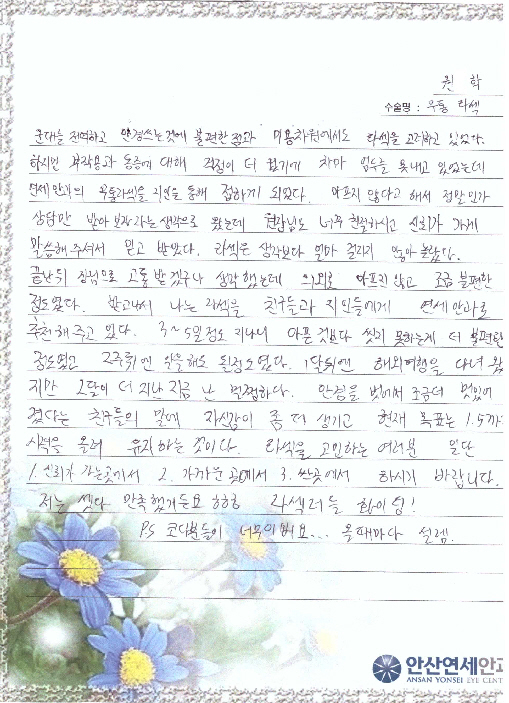 원 학
수술명 : 무통 라섹
군대를 전역하고 안경쓰는것에 불편한점과 미용차원에서도 라섹을 고려하고 있었다.
하지만 부작용과 통증에 대해 걱정이 더 컸기에 차마 엄두를 못내고 있었는데
연세안과의 무통라섹을 지인을 통해 접하게 되었다. 아프지 않다고 해서 정말인가
상담만 받아보자라는 생각으로 왔는데 원장님도 너무 친절하시고 신뢰가 가게
말씀해 주셔서 믿고 받았다. 라섹은 생각보다 얼마 걸리지 않아 놀랐다.
끝난뒤 집님으로 고통 받겠구나 생각했는데 의외로 아프지 않고 조금 불편한
정도였다. 받고나서 나는 라섹을 친구들과 지인들에게 연세안과로
추천해주고 있다. 3~5일정도 지나니 아픈것보다 씻지 못하는게 더 불편한
정도였고 2주뒤엔 운동해도 된정도였다. 1달뒤엔 해외여행을 다녀왔
지만 2달이 더 지난 지금 난 멀쩡하다. 안경을 벗어서 조금더 멋있어
졌다는 친구들의 말에 자신감이 좀 더 생기고 현재 목표는 1.5까지
시력을 올려 유지하는 것이다. 라섹을 고민하는 여러분 일단
1. 신뢰가 가는곳에서 2. 가까운 곳에서 3. 싼곳에서 하시기 바랍니다.
저는 셋다 만족했거든요 하하 라섹러들 힘이 됨!
P.S 코디분들이 너무이뻐요... 올때마다 설렘.
안산연세안과
ANSAN YONSEI EYE CENT